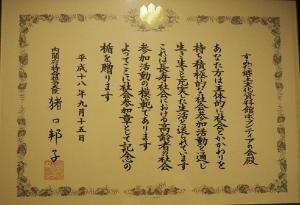 すみだ郷土文化資料館ボランティアの会殿
あなた方は主体的に社会とかかわりを
持ち積極的な社会参加活動を通し
生き生きと充実した生活を送られています
これは長寿社会における高齢者の社会
参加活動の模範であります
よってここに社会参加章とその記念の
楯を贈ります
平成十八年九月十五日
内閣府特命担当大臣 猪口邦子